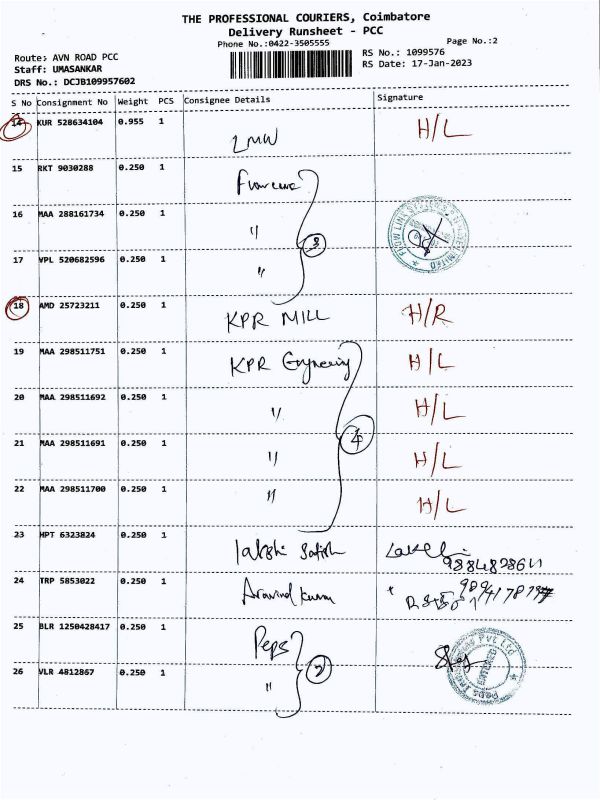 THE PROFESSIONAL COURIERS, Coimbatore
Delivery Runsheet - PCC
Phone No.:0422-3505555
Page No.:2
Route: AVN ROAD PCC
RS No.: 1099576
Staff: UMASANKAR
RS Date: 17-Jan-2023
DRS No.: DCJB109957602
S No Consignment No Weight PCS Consignee Details Signature
14 KUR 528634104 0.955 1 LMW H/L
15 RKT 9030288 0.250 1
16 MAA 288161734 0.250 1 "
3
17 VPL 520682596 0.250 1 "
18 AMD 25723211 0.250 1 KPR MILL H/R
19 MAA 298511751 0.250 1 KPR Engineering H/L
20 MAA 298511692 0.250 1 " H/L
4
21 MAA 298511691 0.250 1 " H/L
22 MAA 298511700 0.250 1 " H/L
23 HPT 6323824 0.250 1 lakshi Satish
24 TRP 5853022 0.250 1 Aravind kumar
25 BLR 1250428417 0.250 1 Peps
2
26 VLR 4812867 0.250 1 "